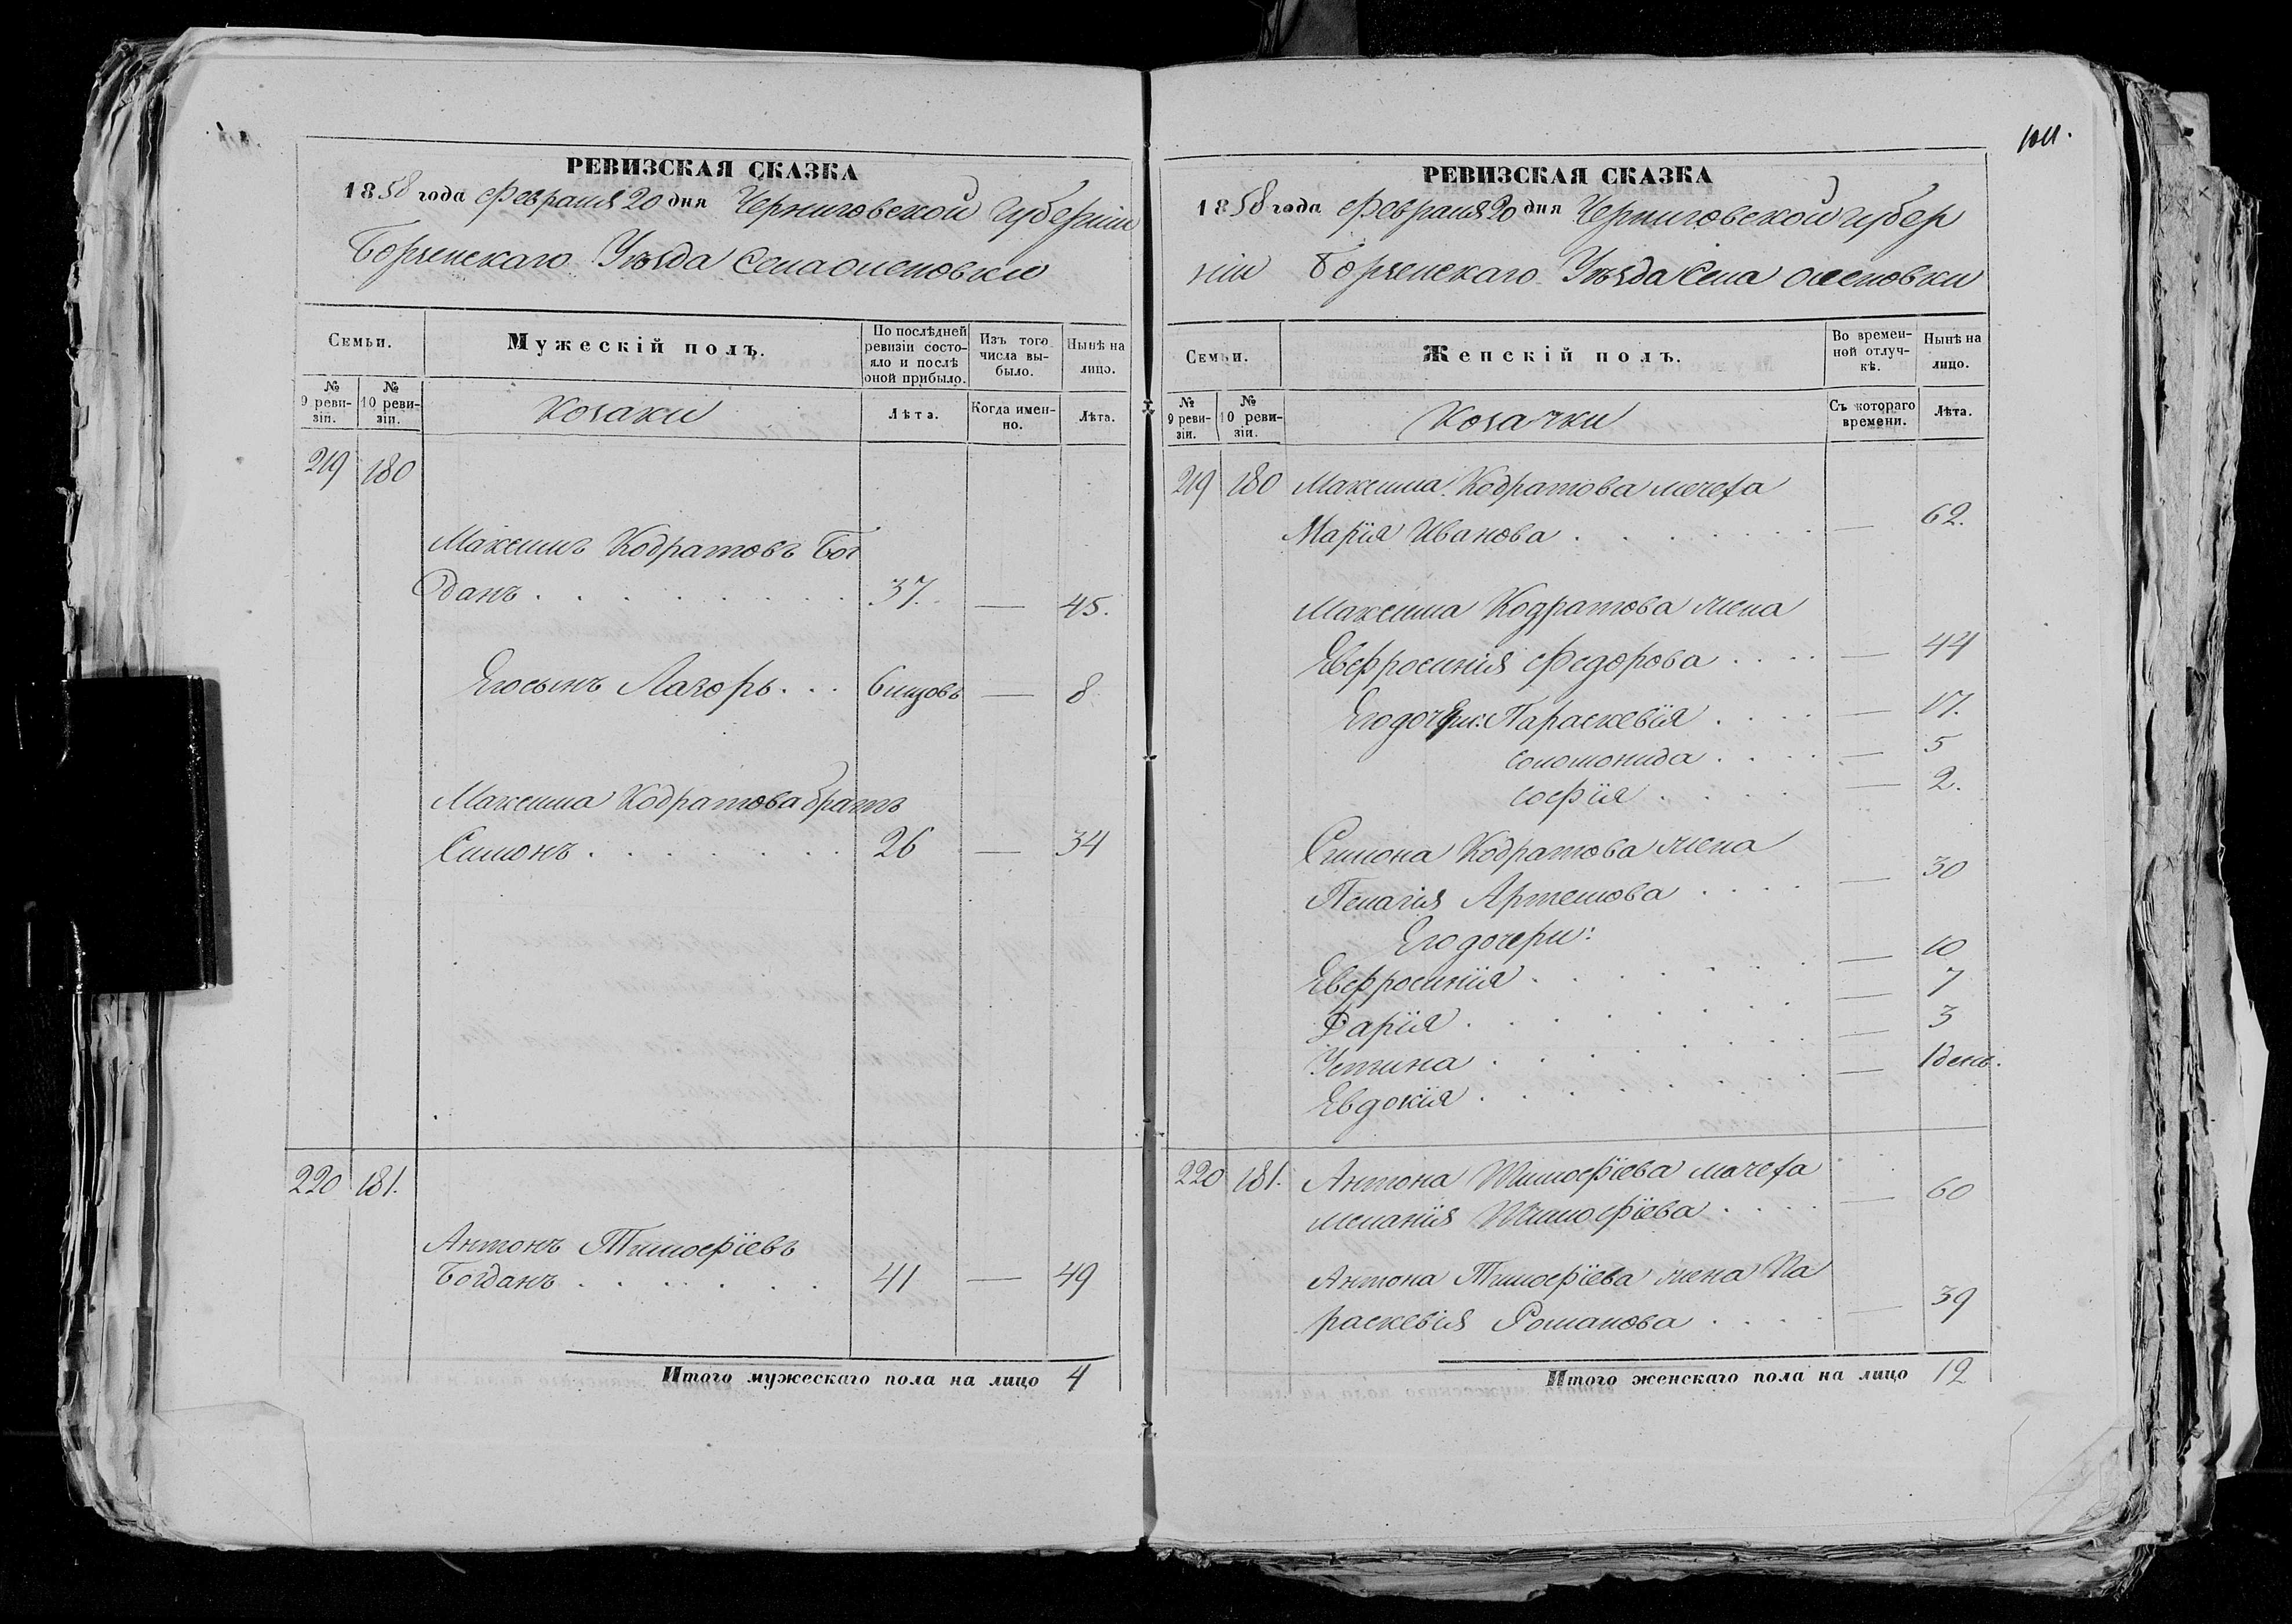 РЕВИЗСКАЯ СКАЗКА
1858 года февраля 20 дня Черниговской Губерніи
Борзенскаго Уѣзда Села Оленовки
Семьи.
Мужескій полъ.
По послѣдней ревизіи состояло и послѣ оной прибыло.
Изъ того числа выбыло.
Нынѣ на лицо.
№ 9 ревизіи.
№ 10 ревизіи.
Козаки
Лѣта.
Когда именно.
Лѣта.
219 180
Максимъ Кодратовъ Бог
данъ . . . 37. — 45.
Его сынъ Лазорь . . . — 8
Максима Кодратова братъ
Симонъ . . . 26 — 34
220 181.
Антонъ Тимофіевъ
Богданъ . . . 41 — 49
Итого мужескаго пола на лицо 4
РЕВИЗСКАЯ СКАЗКА
1858 года февраля 20 дня Черниговской губер
ніи Борзенскаго Уѣзда Села Оленовки
Семьи.
Женскій полъ.
Во временной отлучкѣ.
Нынѣ на лицо.
№ 9 ревизіи.
№ 10 ревизіи.
Козачки
Съ котораго времени.
Лѣта.
219 180 Максима Кодратова мачеха
Марія Иванова . . . — 62.
Максима Кодратова жена
Евфросинія Федорова . . . — 44
Его дочери: Параскевія . . . — 17.
Соломонида . . . — 5
Софія . . . — 2.
Симона Кодратова жена
Пелагія Артемова . . . — 30
Его дочери:
Евфросинія . . . — 10
Дарія . . . — 7
Устина . . . — 3
Евдокія . . . — 1 день.
220 181. Антона Тимофіева мачеха
Меланія Тимофіева . . . — 60
Антона Тимофіева жена Па
раскевія Романова . . . — 39
Итого женскаго пола на лицо 12